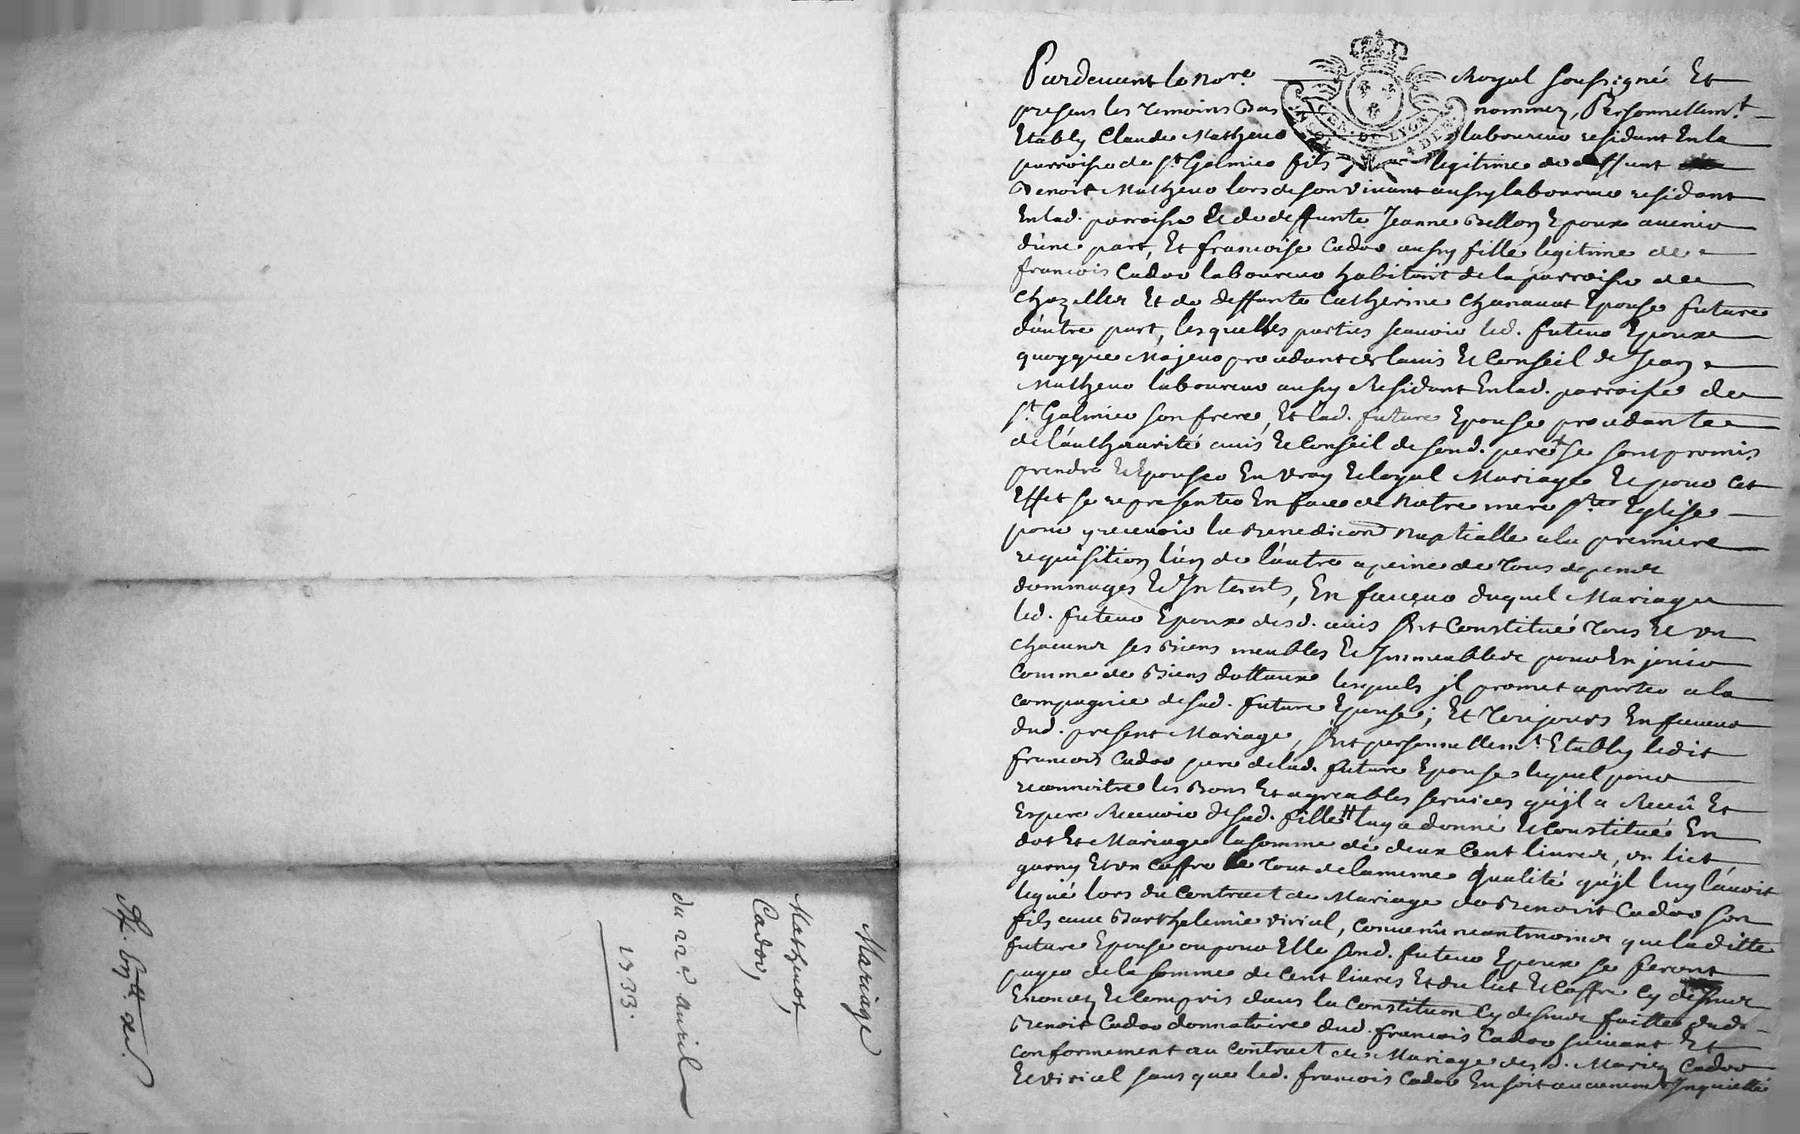 Mariage
Mathevot,
Cadov,
du 22e avril
1733.
Pardevant le nore. Royal soussigné Et
presens les temoins Bas nommez, Personnellemt.
Etably Claude Mathevo laboureuo residant En la
parroisse de st. Galmieo fils legitime de deffunt
Benoit Mathevo lors de son vivant aussy laboureuo residant
En lad. parroisse Et de deffunte Jeanne Bellon Epoux avenio
d'une part, Et francoise Cadov aussy fille legitime de
francois Cadov laboureuo habitant de la parroisse de
Chazelles Et de deffunte Catherine Chanavat Epouse future
d'autre part, lesquelles parties scavoio led. futeuo Epoux
quoyque Majeuo procedant de lauis Et Conseil de Jean
Mathevo laboureuo aussy Residant En lad. parroisse de
st. Galmieo son frere, Et lad. future Epouse procedante
de l'authaurité auis Et Conseil de sond. pere se sont promis
prendre Et Epouseo En vray Et loyal Mariage Et pouo cet
Effet se representeo En face de Notre mere ste. Eglise
pouo y receuoio la Benediction Nuptialle a la premiere
requisition l'un de l'autre a peine de tous depends
dommages Et Interests, En faueuo duquel Mariage
led. futeuo Epoux desd. auis s'est Constitué tous Et un
chacuns ses Biens meubles Et Immeubles pouo En jouio
comme de Biens dottaux lesquels jl promet aporteo a la
compagnie de sad. future Epouse; Et toujours En faueuo
dud. present Mariage, s'est personnellemt. Etably ledit
francois Cadov pere de lad. future Epouse lequel pouo
reconnoitre les Bons Et agreables services qu'jl a Receû Et
Espere Receuoio de sad. fille luy a donné Et Constitué En
dot Et Mariage la somme de deux Cent livres, un lict
garny Et un Coffre le tout de la meme qualité qu'jl luy l'auoit
legué lors du Contract de Mariage de Benoit Cadov son
fils auec Barthelemie virial, Convenû neantmoins que laditte
future Epouse ou pouo Elle sond. futeuo Epoux se feront
payeo de la somme de Cent livres Et du lict Et Coffre Cy dessus
Enoncez Et Compris dans la Constitution Cy dessus faitte aud.
Benoit Cadov donnatoire dud. francois Cadov suivant Et
conformement au Contract de Mariage desd. Mariez Cadov
Et virial sans que led. francois Cadov En soit aucunemt. Inquietté